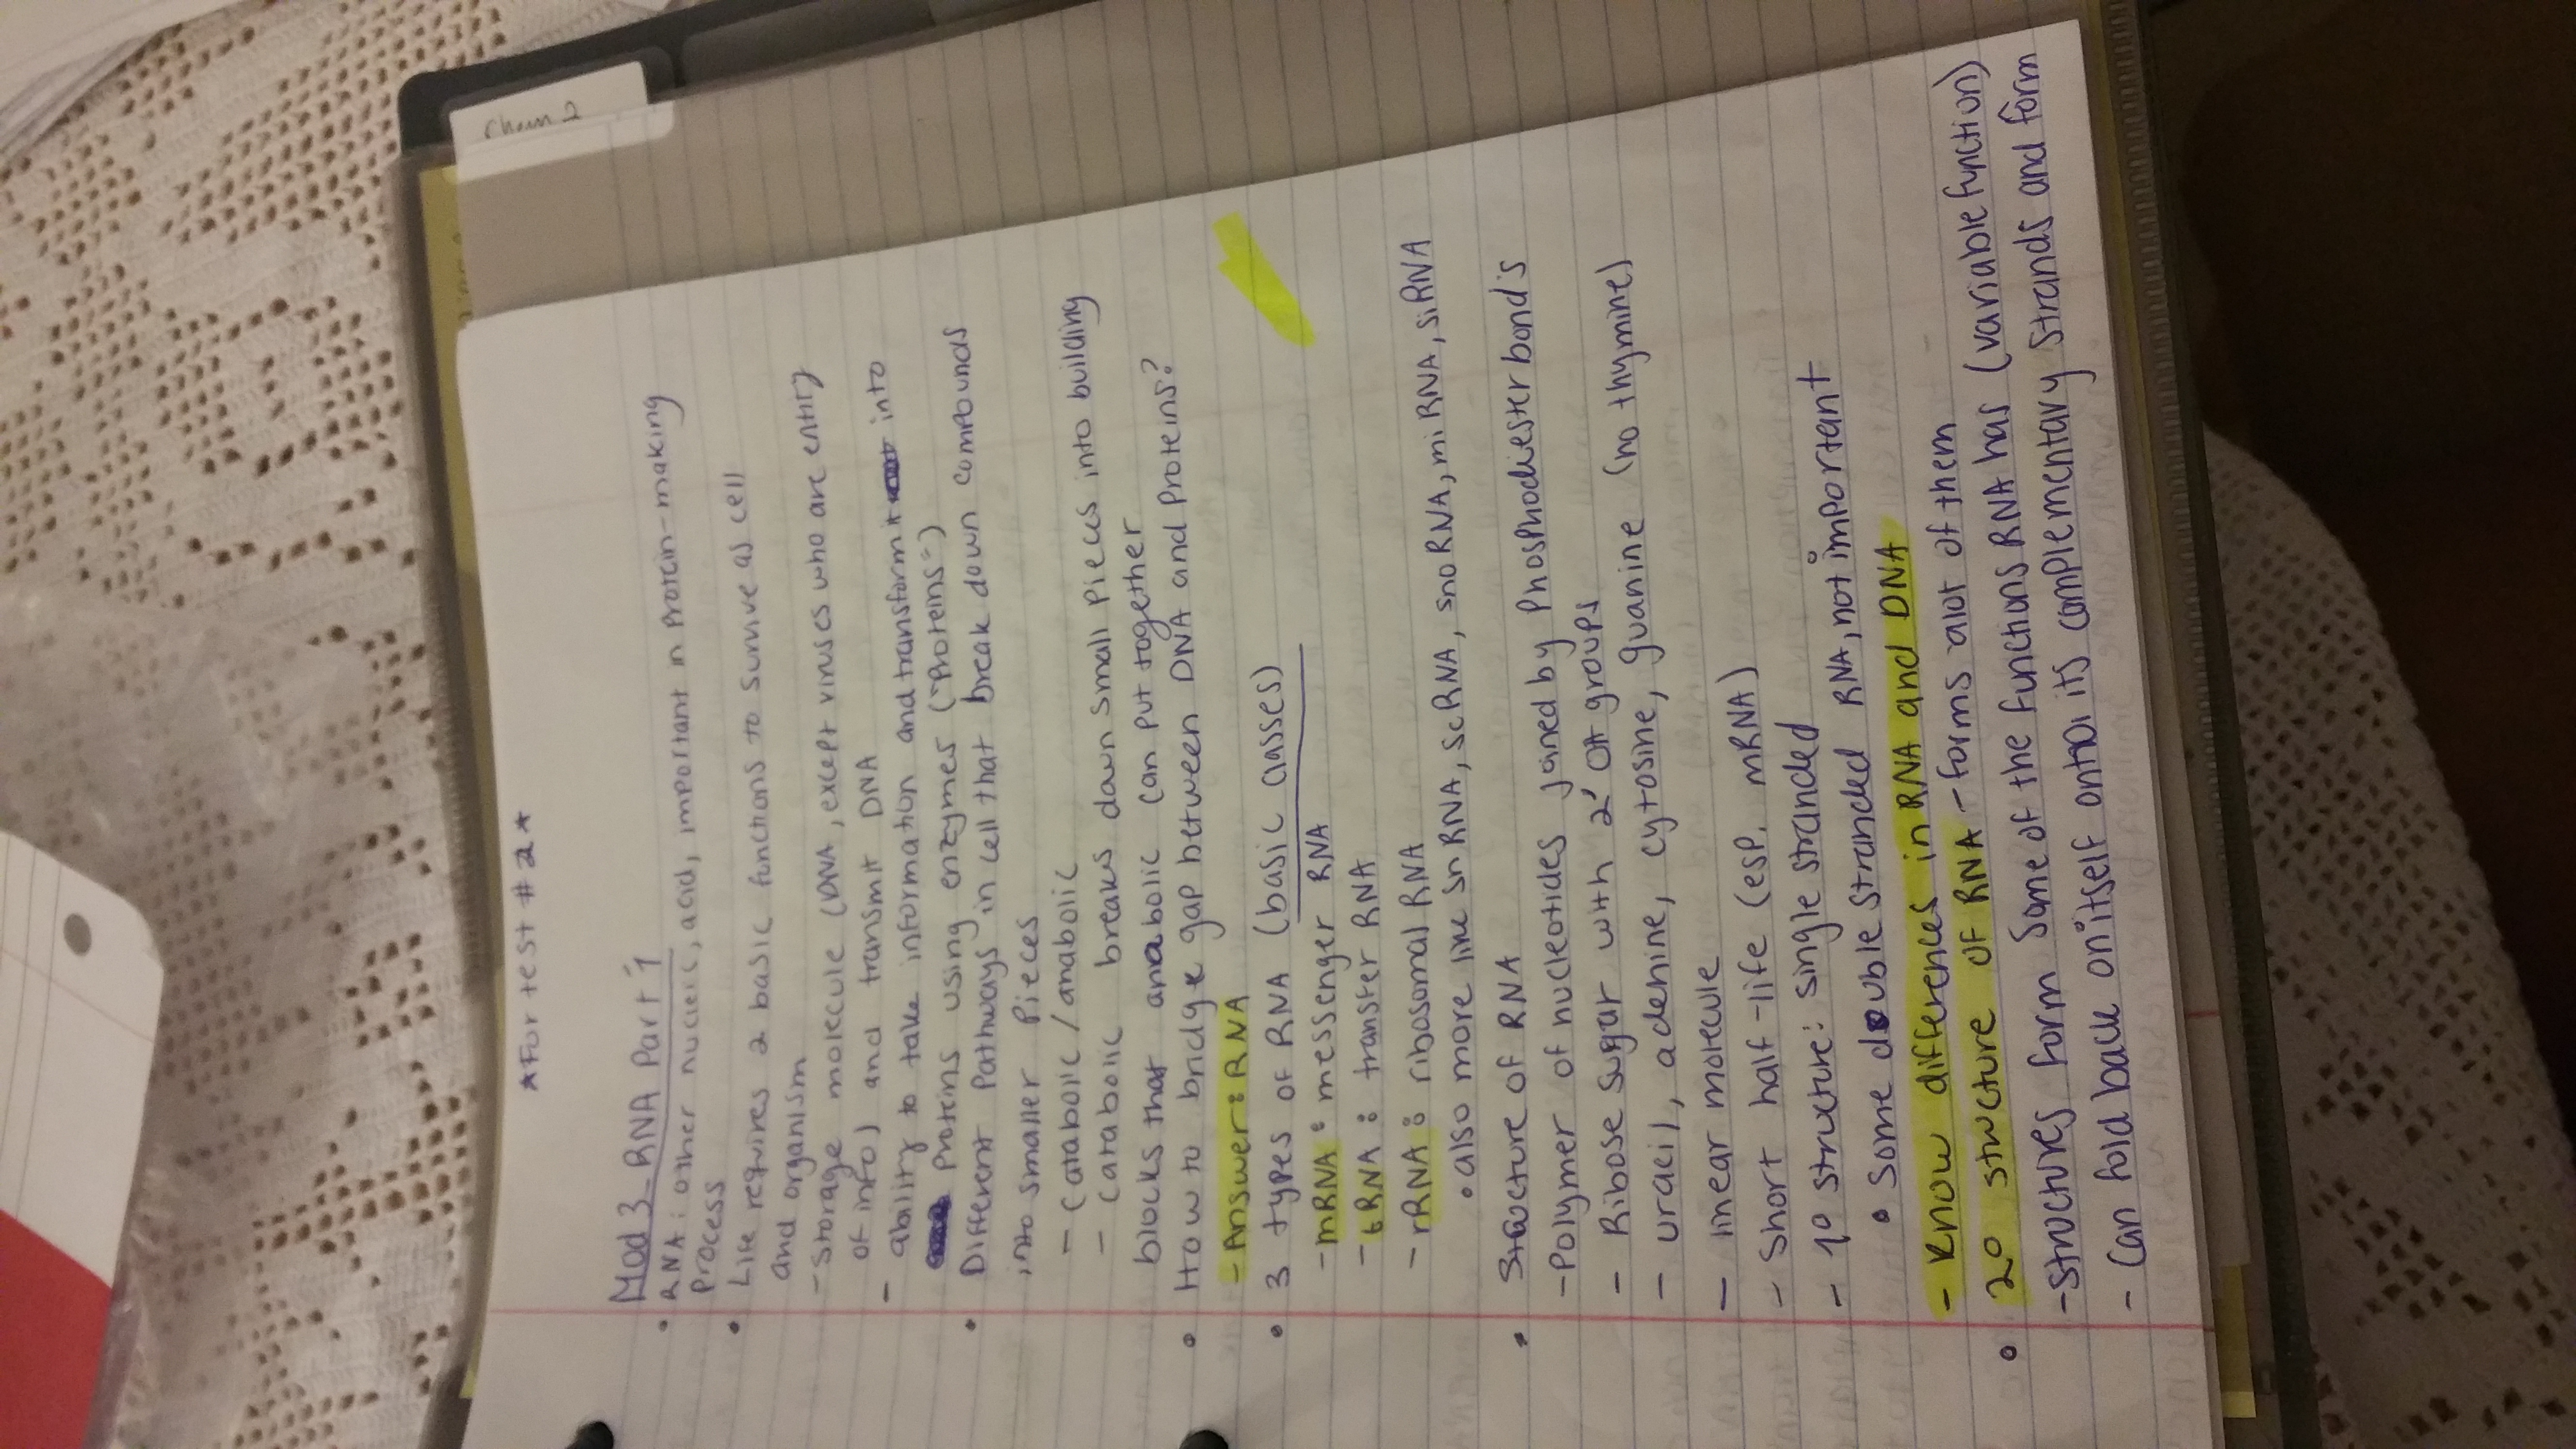 Chem 2
*For test #2*
Mod 3 RNA Part 1
• RNA: other nucleic, acid, important in protein-making
process
• Life requires 2 basic functions to survive as cell
and organism
- Storage molecule (DNA, except viruses who are entity
of info) and transmit DNA
- ability to take information and transform it into
Proteins using enzymes ("Proteins")
• Different Pathways in cell that break down compounds
into smaller Pieces
- Catabolic/anabolic
- Catabolic breaks down small pieces into building
blocks that anabolic can put together
• How to bridge gap between DNA and Proteins?
- Answer: RNA
• 3 types of RNA (basic classes)
- mRNA: messenger RNA
- tRNA: transfer RNA
- rRNA: ribosomal RNA
• also more like snRNA, scRNA, snoRNA, miRNA, siRNA
• Structure of RNA
- Polymer of nucleotides joined by Phosphodiester bonds
- Ribose sugar with 2' OH groups
- uracil, adenine, cytosine, guanine (no thymine)
- linear molecule
- Short half-life (esp. mRNA)
- 1° structure: single stranded
• Some double stranded RNA, not important
- Know differences in RNA and DNA
• 2° structure of RNA - forms alot of them
- Structures form some of the functions RNA has (variable function)
- Can fold back on itself onto its complementary strands and form